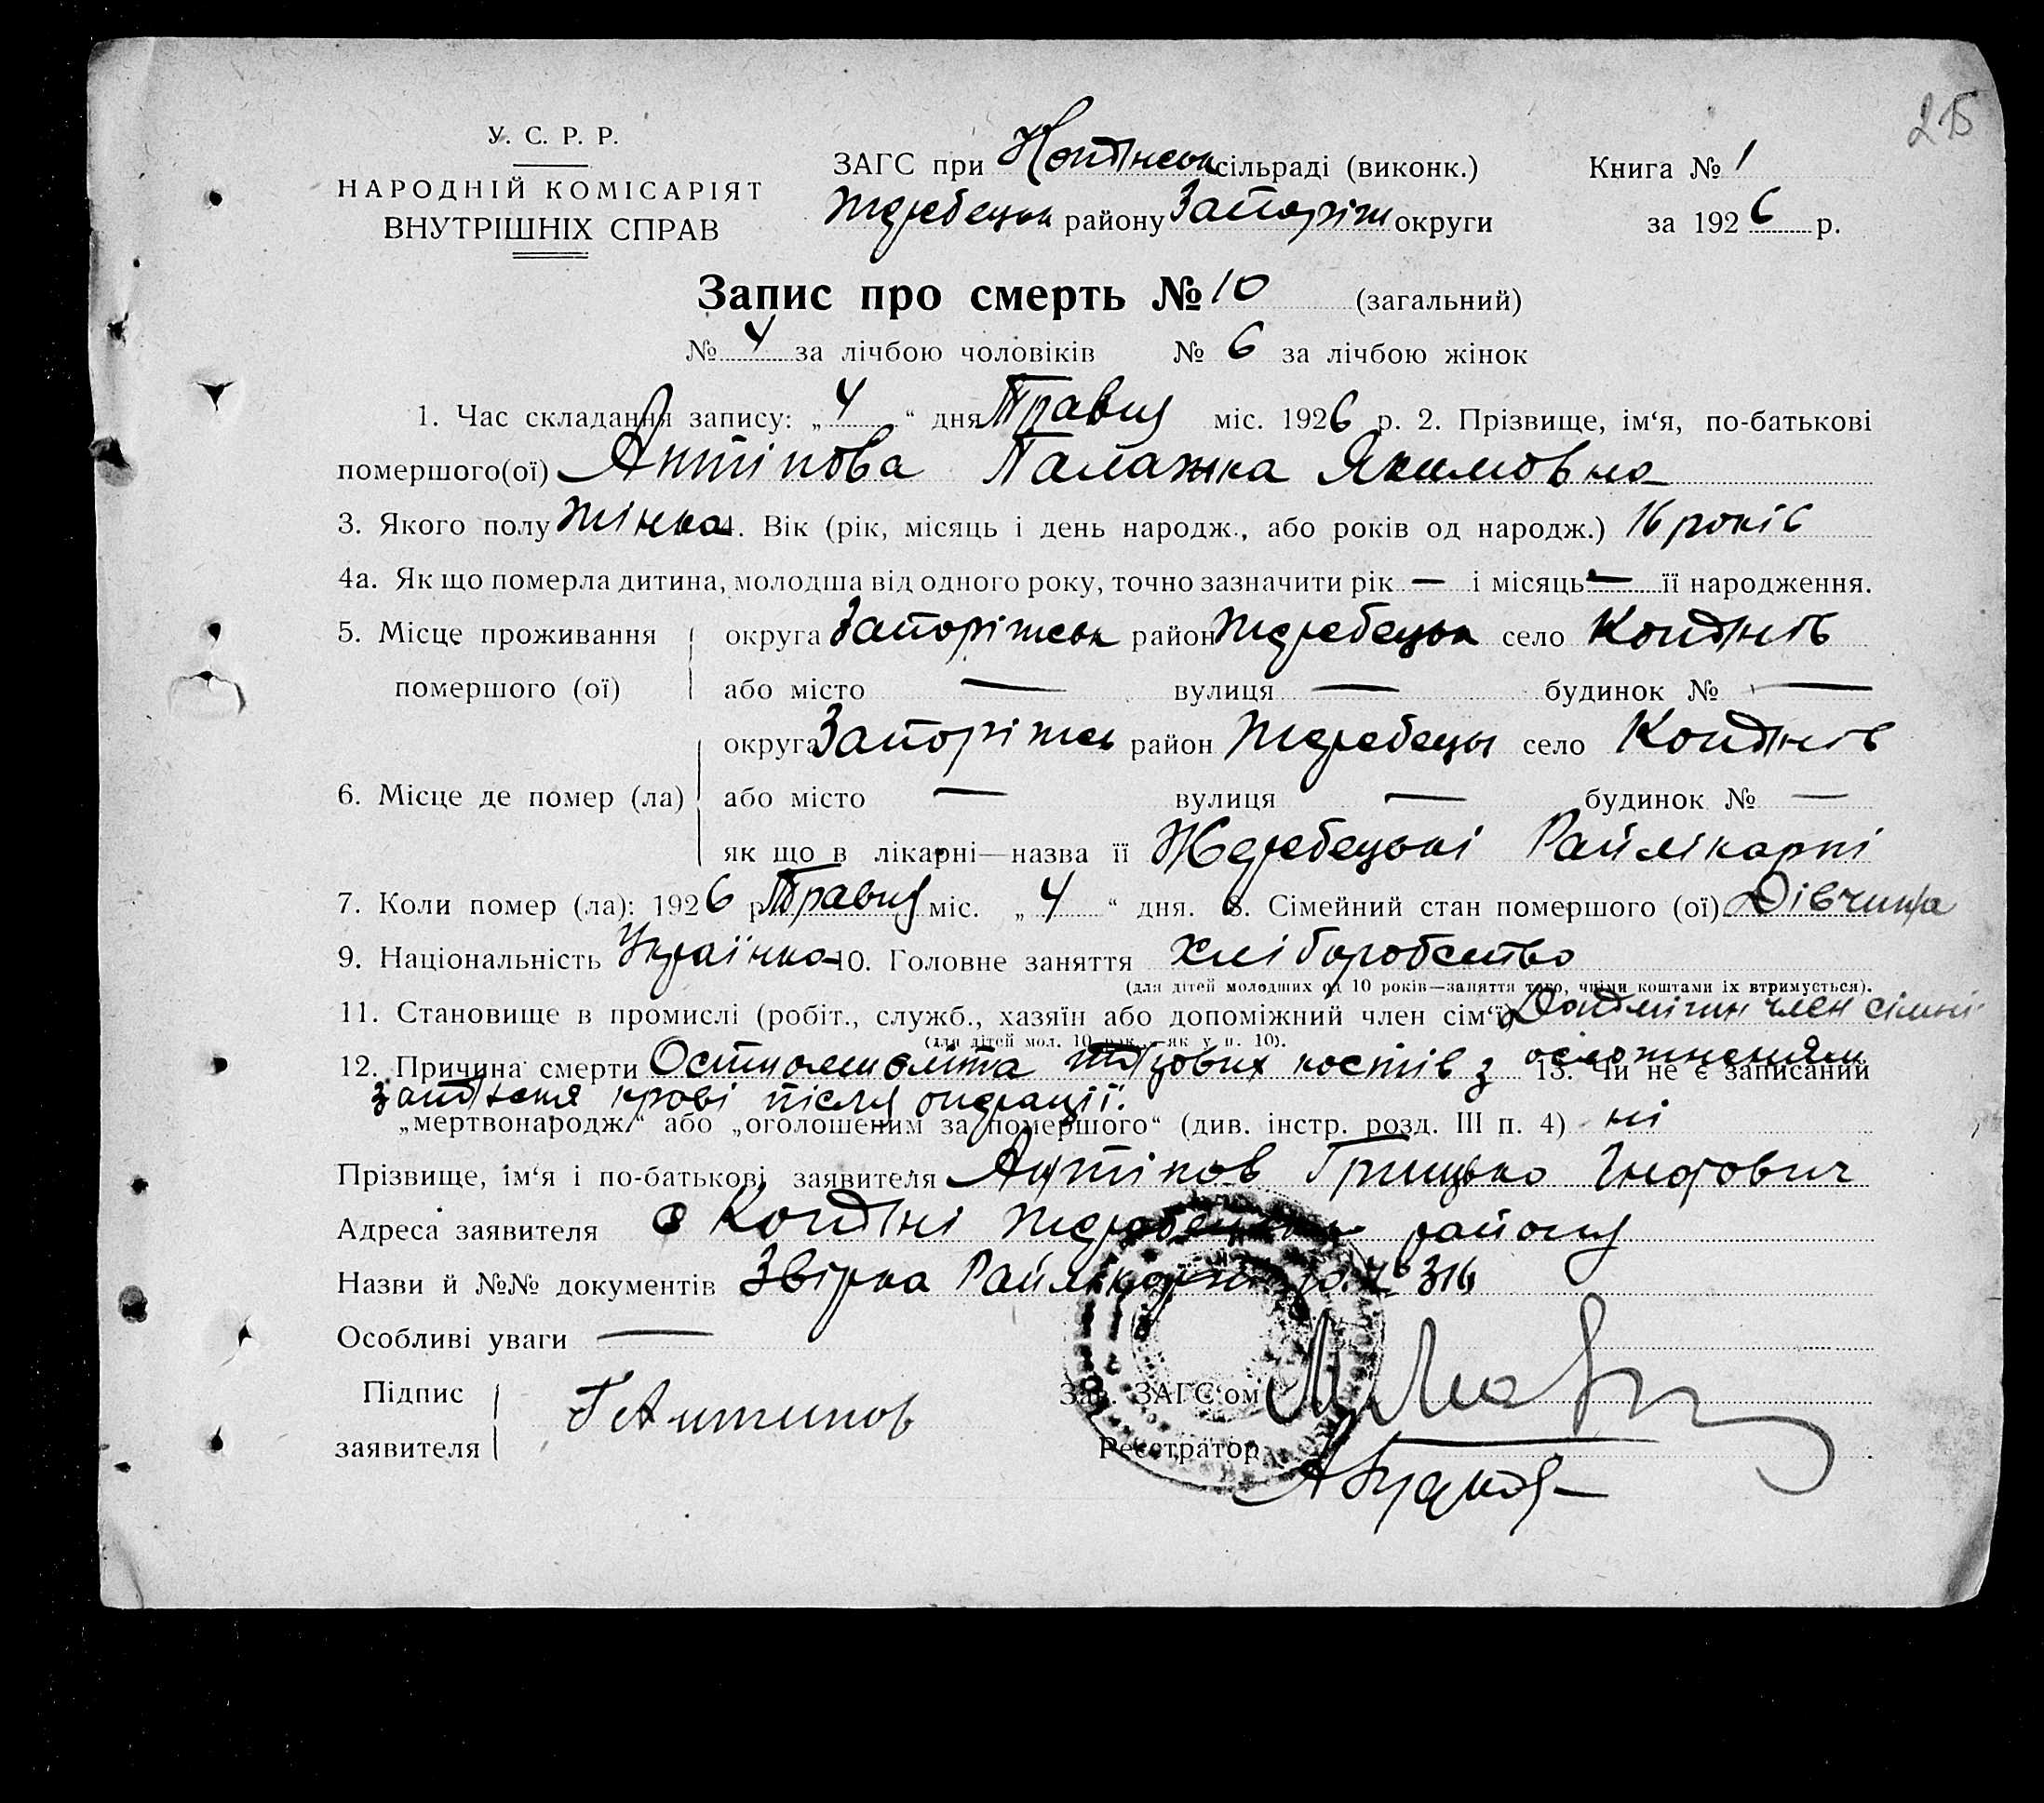 25
У. С. Р. Р.
НАРОДНІЙ КОМІСАРІЯТ
ВНУТРІШНІХ СПРАВ
ЗАГС при Копанськ сільраді (виконк.) Книга № 1
Жеребецьк району Запоріж округи за 1926 р.
Запис про смерть № 10 (загальний)
№ 4 за лічбою чоловіків № 6 за лічбою жінок
1. Час складання запису: „ 4 “ дня Травня міс. 1926 р. 2. Прізвище, ім‘я, по-батькові
помершого(ої) Антіпова Палажка Якимовна
3. Якого полу Жінка 4. Вік (рік, місяць і день народж., або років од народж.) 16 років
4а. Як що померла дитина, молодша від одного року, точно зазначити рік — і місяць — її народження.
5. Місце проживання округа Запоріжськ район Жеребецьк село Копанів
помершого (ої) або місто — вулиця — будинок № —
округа Запоріжсь район Жеребець село Копанів
6. Місце де помер (ла) або місто — вулиця — будинок № —
як що в лікарні—назва її Жеребецькі Райлікарні
7. Коли помер (ла): 1926 р. Травня міс. „ 4 “ дня. 8. Сімейний стан помершого (ої) Дівчина
9. Національність Українка 10. Головне заняття хліборобство
(для дітей молодших од 10 років—заняття того, чиїми коштами їх втримується).
11. Становище в промислі (робіт., служб., хазяїн або допоміжний член сім‘ї) член сімні
(для дітей мол. 10 рок.—як у п. 10).
12. Причина смерти Остиомиоліта тазових костів з осложненням 13. Чи не є записаний
крові після операції.
„мертвонародж.“ або „оголошеним за помершого“ (див. інстр. розд. III п. 4) ні
Прізвище, ім‘я і по-батькові заявителя Антіпов Грицько
Адреса заявителя с Копані Жеребецьк району
Назви й №№ документів Райлікарні за № 316
Особливі уваги —
Підпис Г Антипов Зав. ЗАГС‘ом
заявителя Реєстратор